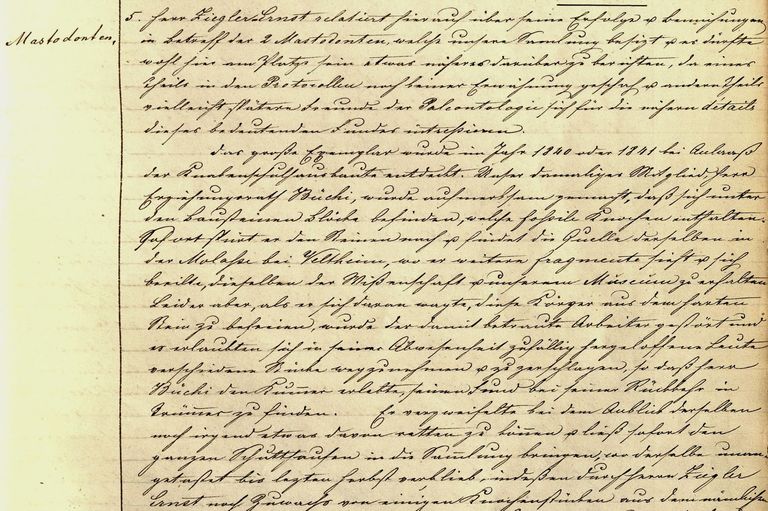 Mastodonten,
5. Herr Ziegler-Ernst relatiert hierauf über seine Erfolge & Bemühungen
in Betreff der 2 Mastodonten, welche unsere Sammlung besizt & es dürfte
wohl hier am Platze sein etwas näheres darüber zu berichten, da eines
Theils in den Protocollen noch keiner Erwähnung geschah & andern Theils
vielleicht spätere Freunde der Paleontologie sich für die nähern details
dieses bedeutenden Fundes intressieren.
Das große Exemplar wurde im Jahr 1840 oder 1841 bei Anlaß
der Knabenschulhausbaute entdekt. Unser damaliges Mitglied, Herr
Erziehungsrath Büchi, wurde aufmerksam gemacht, daß sich unter
den Bausteinen Blöcke befinden, welche fossile Knochen enthalten.
Sofort spürt er den Steinen nach & findet die Quelle derselben in
der Molasse bei Veltheim, wo er weitere fragmente sieht & sich
beeilte, dieselben der Wißenschaft & unserem Museum zu erhalten
Leider aber, als er sich daran wagte, diese Körper aus dem harten
Stein zu befreien, wurde der damit betraute Arbeiter gestört und
es erlaubten sich in seiner Abwesenheit zufällig hergeloffene Leute
verschiedene Stücke wegzunehmen & zu zerschlagen, so daß Herr
Büchi den Kummer erlebte, seinen Fund bei seiner Rückkehr in
Trümmer zu finden. Er verzweifelte bei dem Anblick derselben
noch irgend etwas davon retten zu können & ließ sofort den
ganzen Schutthaufen in die Sammlung bringen, wo derselbe unan-
getastet bis lezten Herbst verblieb, indeßen durch Herrn Ziegler
Ernst noch Zuwachs von einigen Knochenstücken aus dem nämlichen